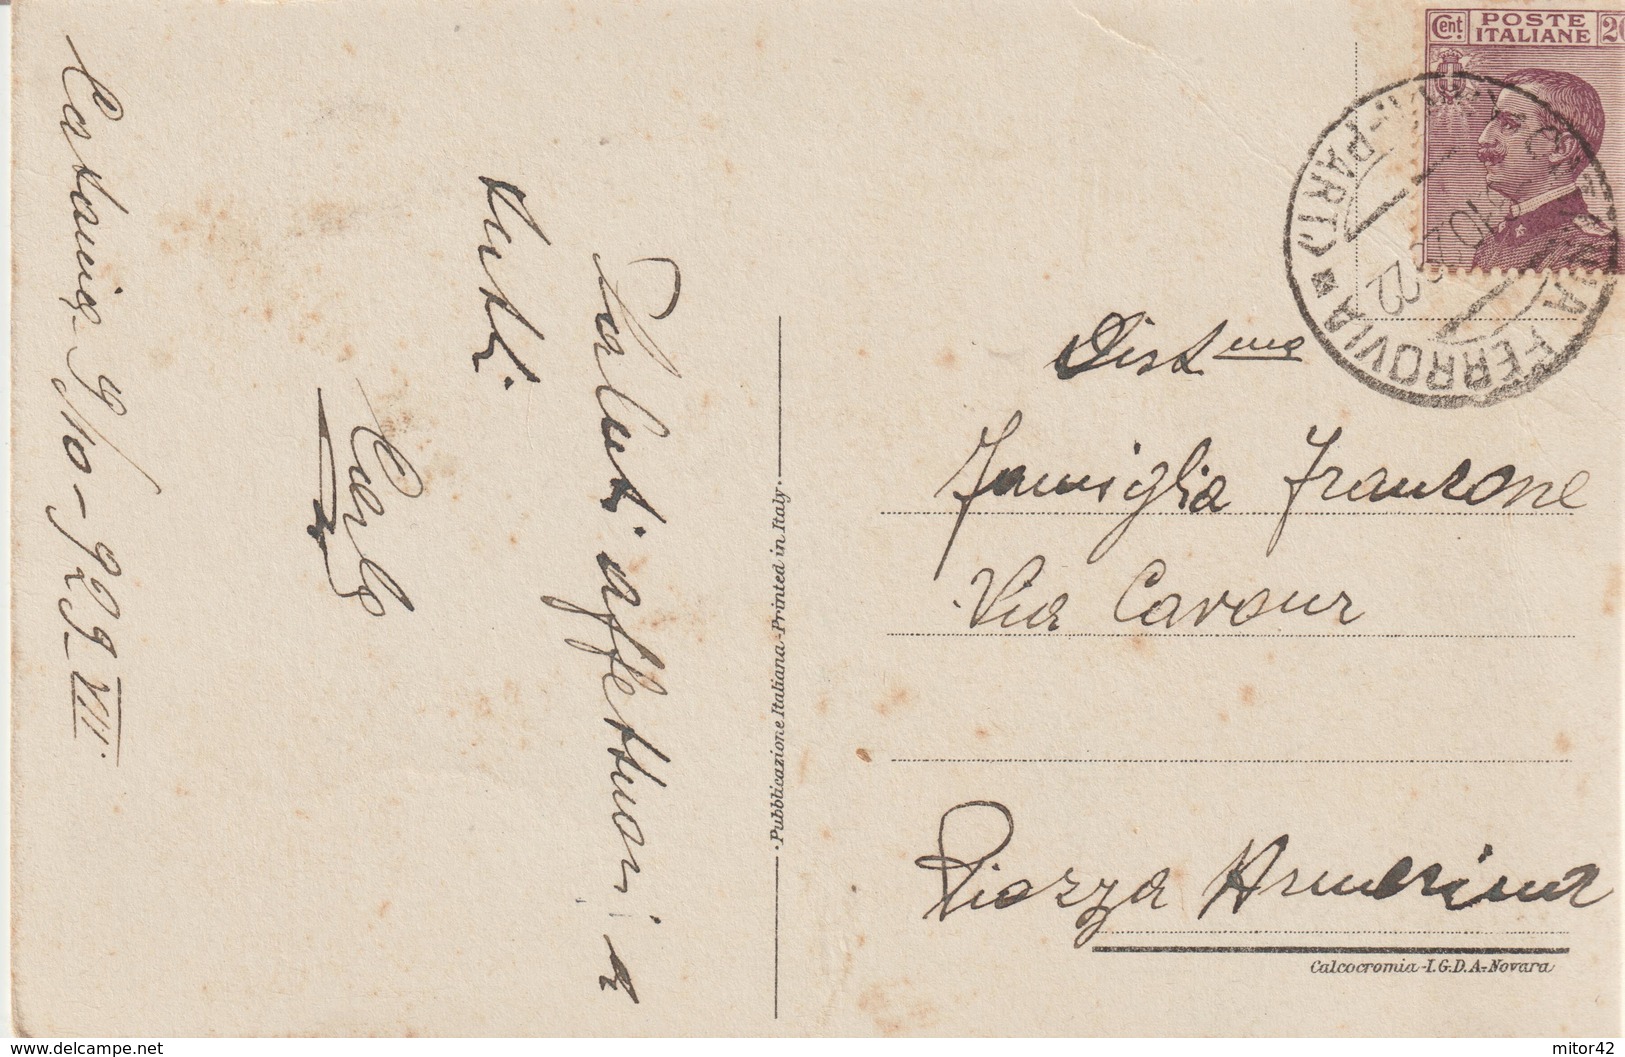 Catania 9/10-929 VII.
Saluti affettuosi a
tutti.
Carlo
·Pubblicazione Italiana-Printed in Italy·
Cent. POSTE ITALIANE 20
CATANIA FERROVIA
PART.)
10.29
22
Dist.mo
Famiglia Franzone
Via Cavour
Piazza Armerina
Calcocromia-I.G.D.A-Novara
mitor42
delcampe.net